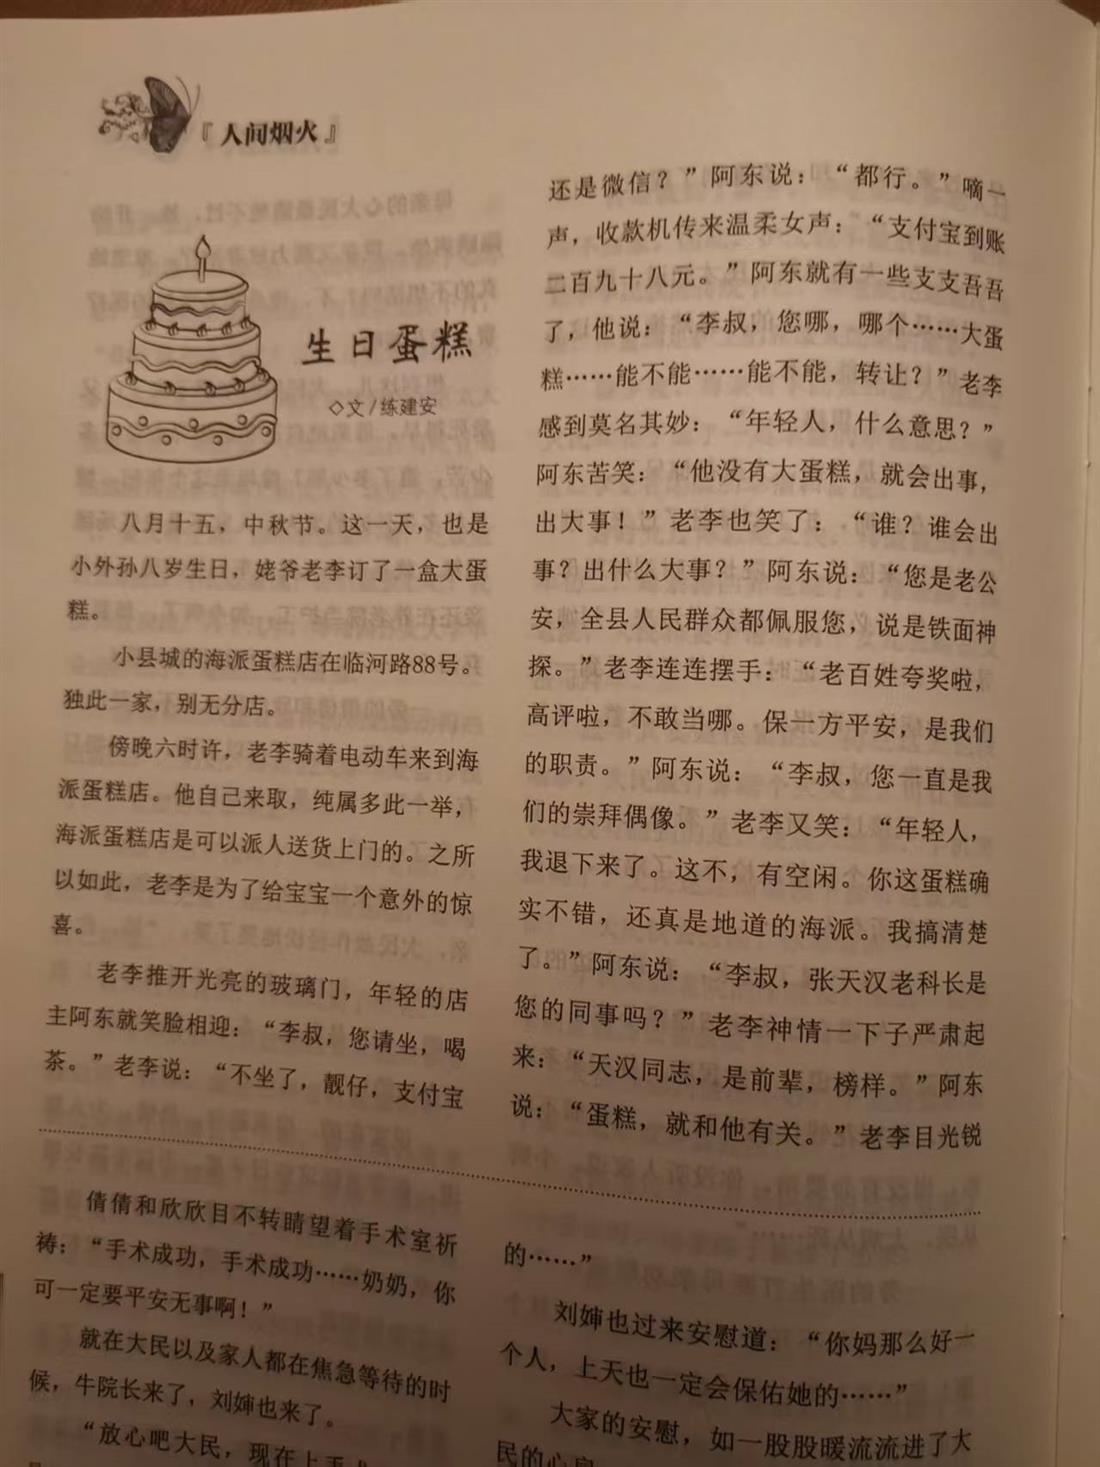 『人间烟火』
生日蛋糕
◇文/练建安
八月十五，中秋节。这一天，也是
小外孙八岁生日，姥爷老李订了一盒大蛋
糕。
小县城的海派蛋糕店在临河路88号。
独此一家，别无分店。
傍晚六时许，老李骑着电动车来到海
派蛋糕店。他自己来取，纯属多此一举，
海派蛋糕店是可以派人送货上门的。之所
以如此，老李是为了给宝宝一个意外的惊
喜。
老李推开光亮的玻璃门，年轻的店
主阿东就笑脸相迎：“李叔，您请坐，喝
茶。”老李说：“不坐了，靓仔，支付宝
还是微信？”阿东说：“都行。”嘀一
声，收款机传来温柔女声：“支付宝到账
二百九十八元。”阿东就有一些支支吾吾
了，他说：“李叔，您哪，哪个……大蛋
糕……能不能……能不能，转让？”老李
感到莫名其妙：“年轻人，什么意思？”
阿东苦笑：“他没有大蛋糕，就会出事，
出大事！”老李也笑了：“谁？谁会出
事？出什么大事？”阿东说：“您是老公
安，全县人民群众都佩服您，说是铁面神
探。”老李连连摆手：“老百姓夸奖啦，
高评啦，不敢当哪。保一方平安，是我们
的职责。”阿东说：“李叔，您一直是我
们的崇拜偶像。”老李又笑：“年轻人，
我退下来了。这不，有空闲。你这蛋糕确
实不错，还真是地道的海派。我搞清楚
了。”阿东说：“李叔，张天汉老科长是
您的同事吗？”老李神情一下子严肃起
来：“天汉同志，是前辈，榜样。”阿东
说：“蛋糕，就和他有关。”老李目光锐
倩倩和欣欣目不转睛望着手术室祈
祷：“手术成功，手术成功……奶奶，你
可一定要平安无事啊！”
就在大民以及家人都在焦急等待的时
候，牛院长来了，刘婶也来了。
“放心吧大民，现在上手
的……”
刘婶也过来安慰道：“你妈那么好一
个人，上天也一定会保佑她的……”
大家的安慰，如一股股暖流流进了大
民的心